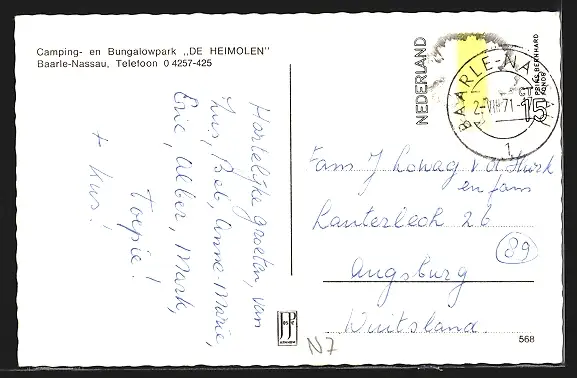 Camping- en Bungalowpark „DE HEIMOLEN"
Baarle-Nassau, Telefoon 0 4257-425
Hartelijke groeten, van
Lus, Bob, Anne-Marie,
Eric, Alber, Mark,
Toepie!
+ kus!
NEDERLAND
PRINS BERNHARD
FONDS
CT
15
BAARLE-NASSAU
2-VIII 71
1
Fam J Lowag v d
en fam
Lauterlech 26
89
Augsburg
Duitsland.
N7
568